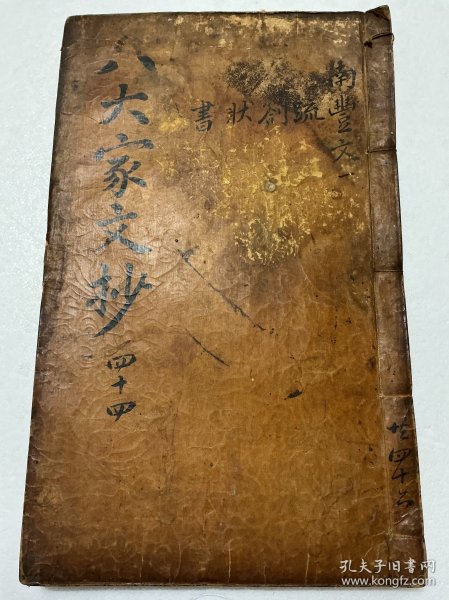 八大家文抄 四十四
南豐文一
疏劄狀書
共四十六
孔夫子旧书网
www.kongfz.com